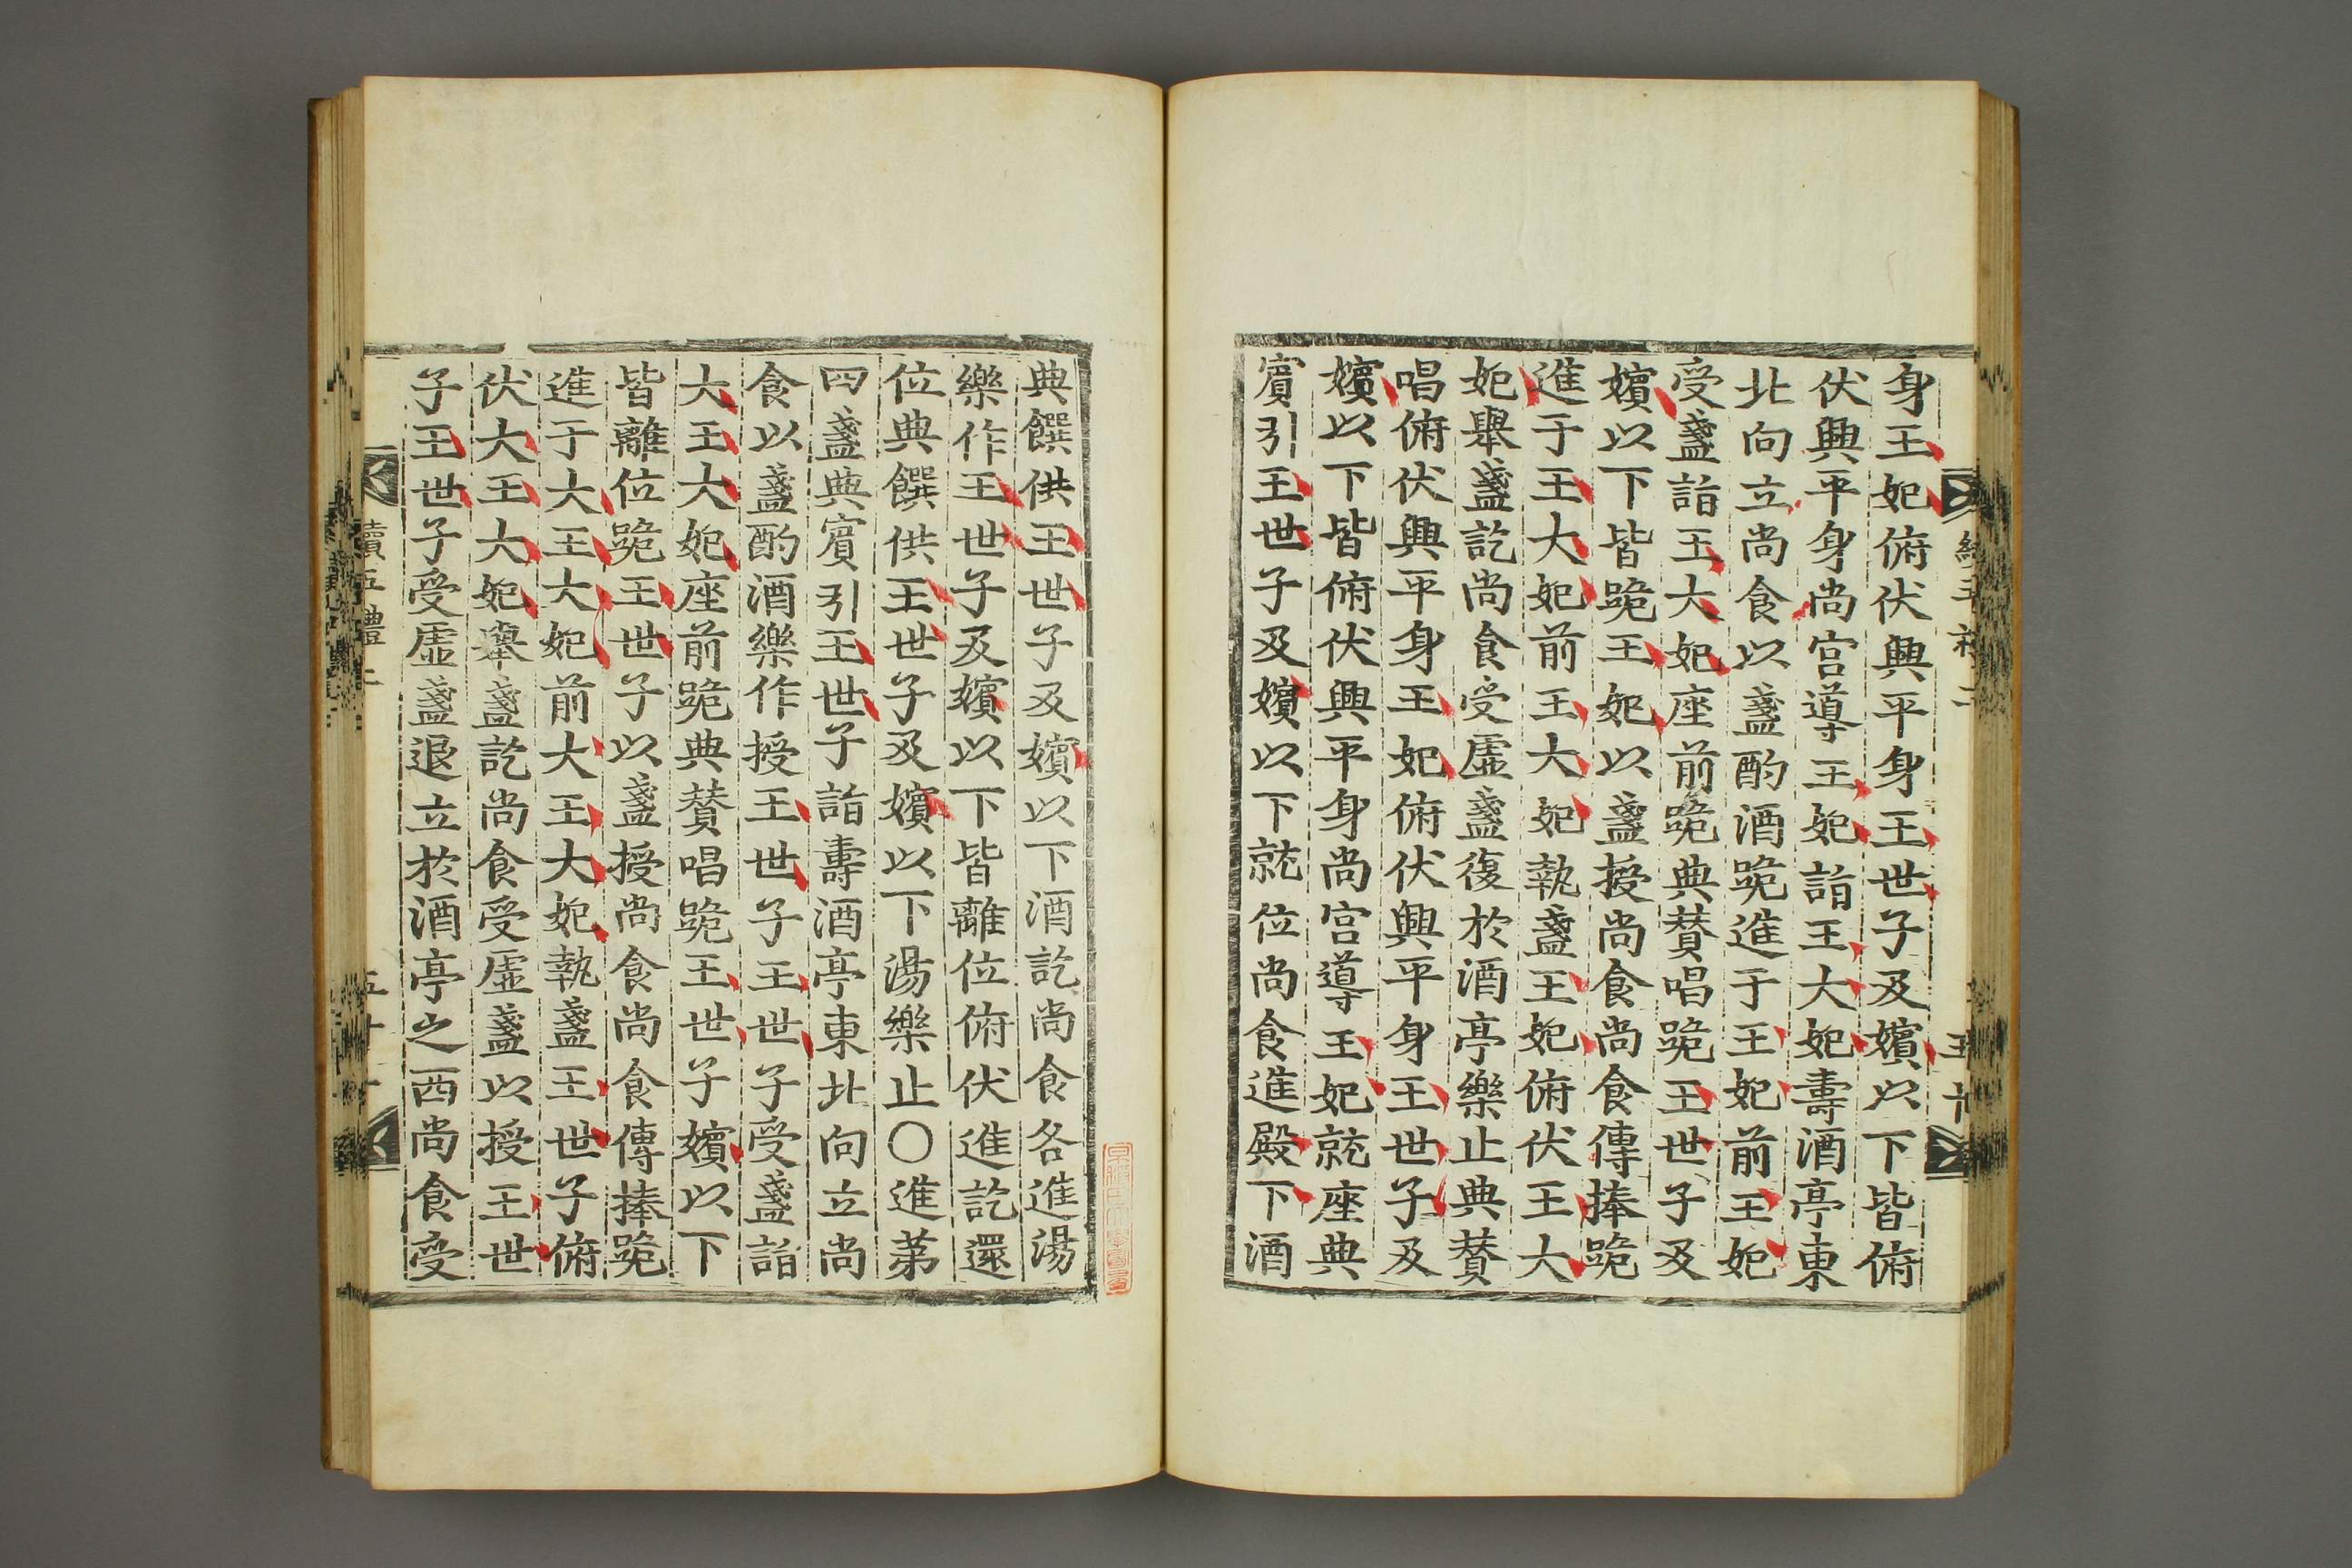 身王妃俯伏興平身王世子及嬪以下皆俯
伏興平身尚宮導王妃詣王大妃壽酒亭東
北向立尚食以盞酌酒跪進于王妃前王妃
受盞詣王大妃座前跪典賛唱跪王世子及
嬪以下皆跪王妃以盞授尚食尚食傳捧跪
進于王大妃前王大妃執盞王妃俯伏王大
妃舉盞訖尚食受虛盞復於酒亭樂止典賛
唱俯伏興平身王妃俯伏興平身王世子及
嬪以下皆俯伏興平身尚宮導王妃就座典
賓引王世子及嬪以下就位尚食進殿下酒
典饌供王世子及嬪以下酒訖尚食各進湯
樂作王世子及嬪以下皆離位俯伏進訖還
位典饌供王世子及嬪以下湯樂止○進第
四盞典賓引王世子詣壽酒亭東北向立尚
食以盞酌酒樂作授王世子王世子受盞詣
大王大妃座前跪典賛唱跪王世子嬪以下
皆離位跪王世子以盞授尚食尚食傳捧跪
進于大王大妃前大王大妃執盞王世子俯
伏大王大妃舉盞訖尚食受虛盞以授王世
子王世子受虛盞退立於酒亭之西尚食受
續五禮二